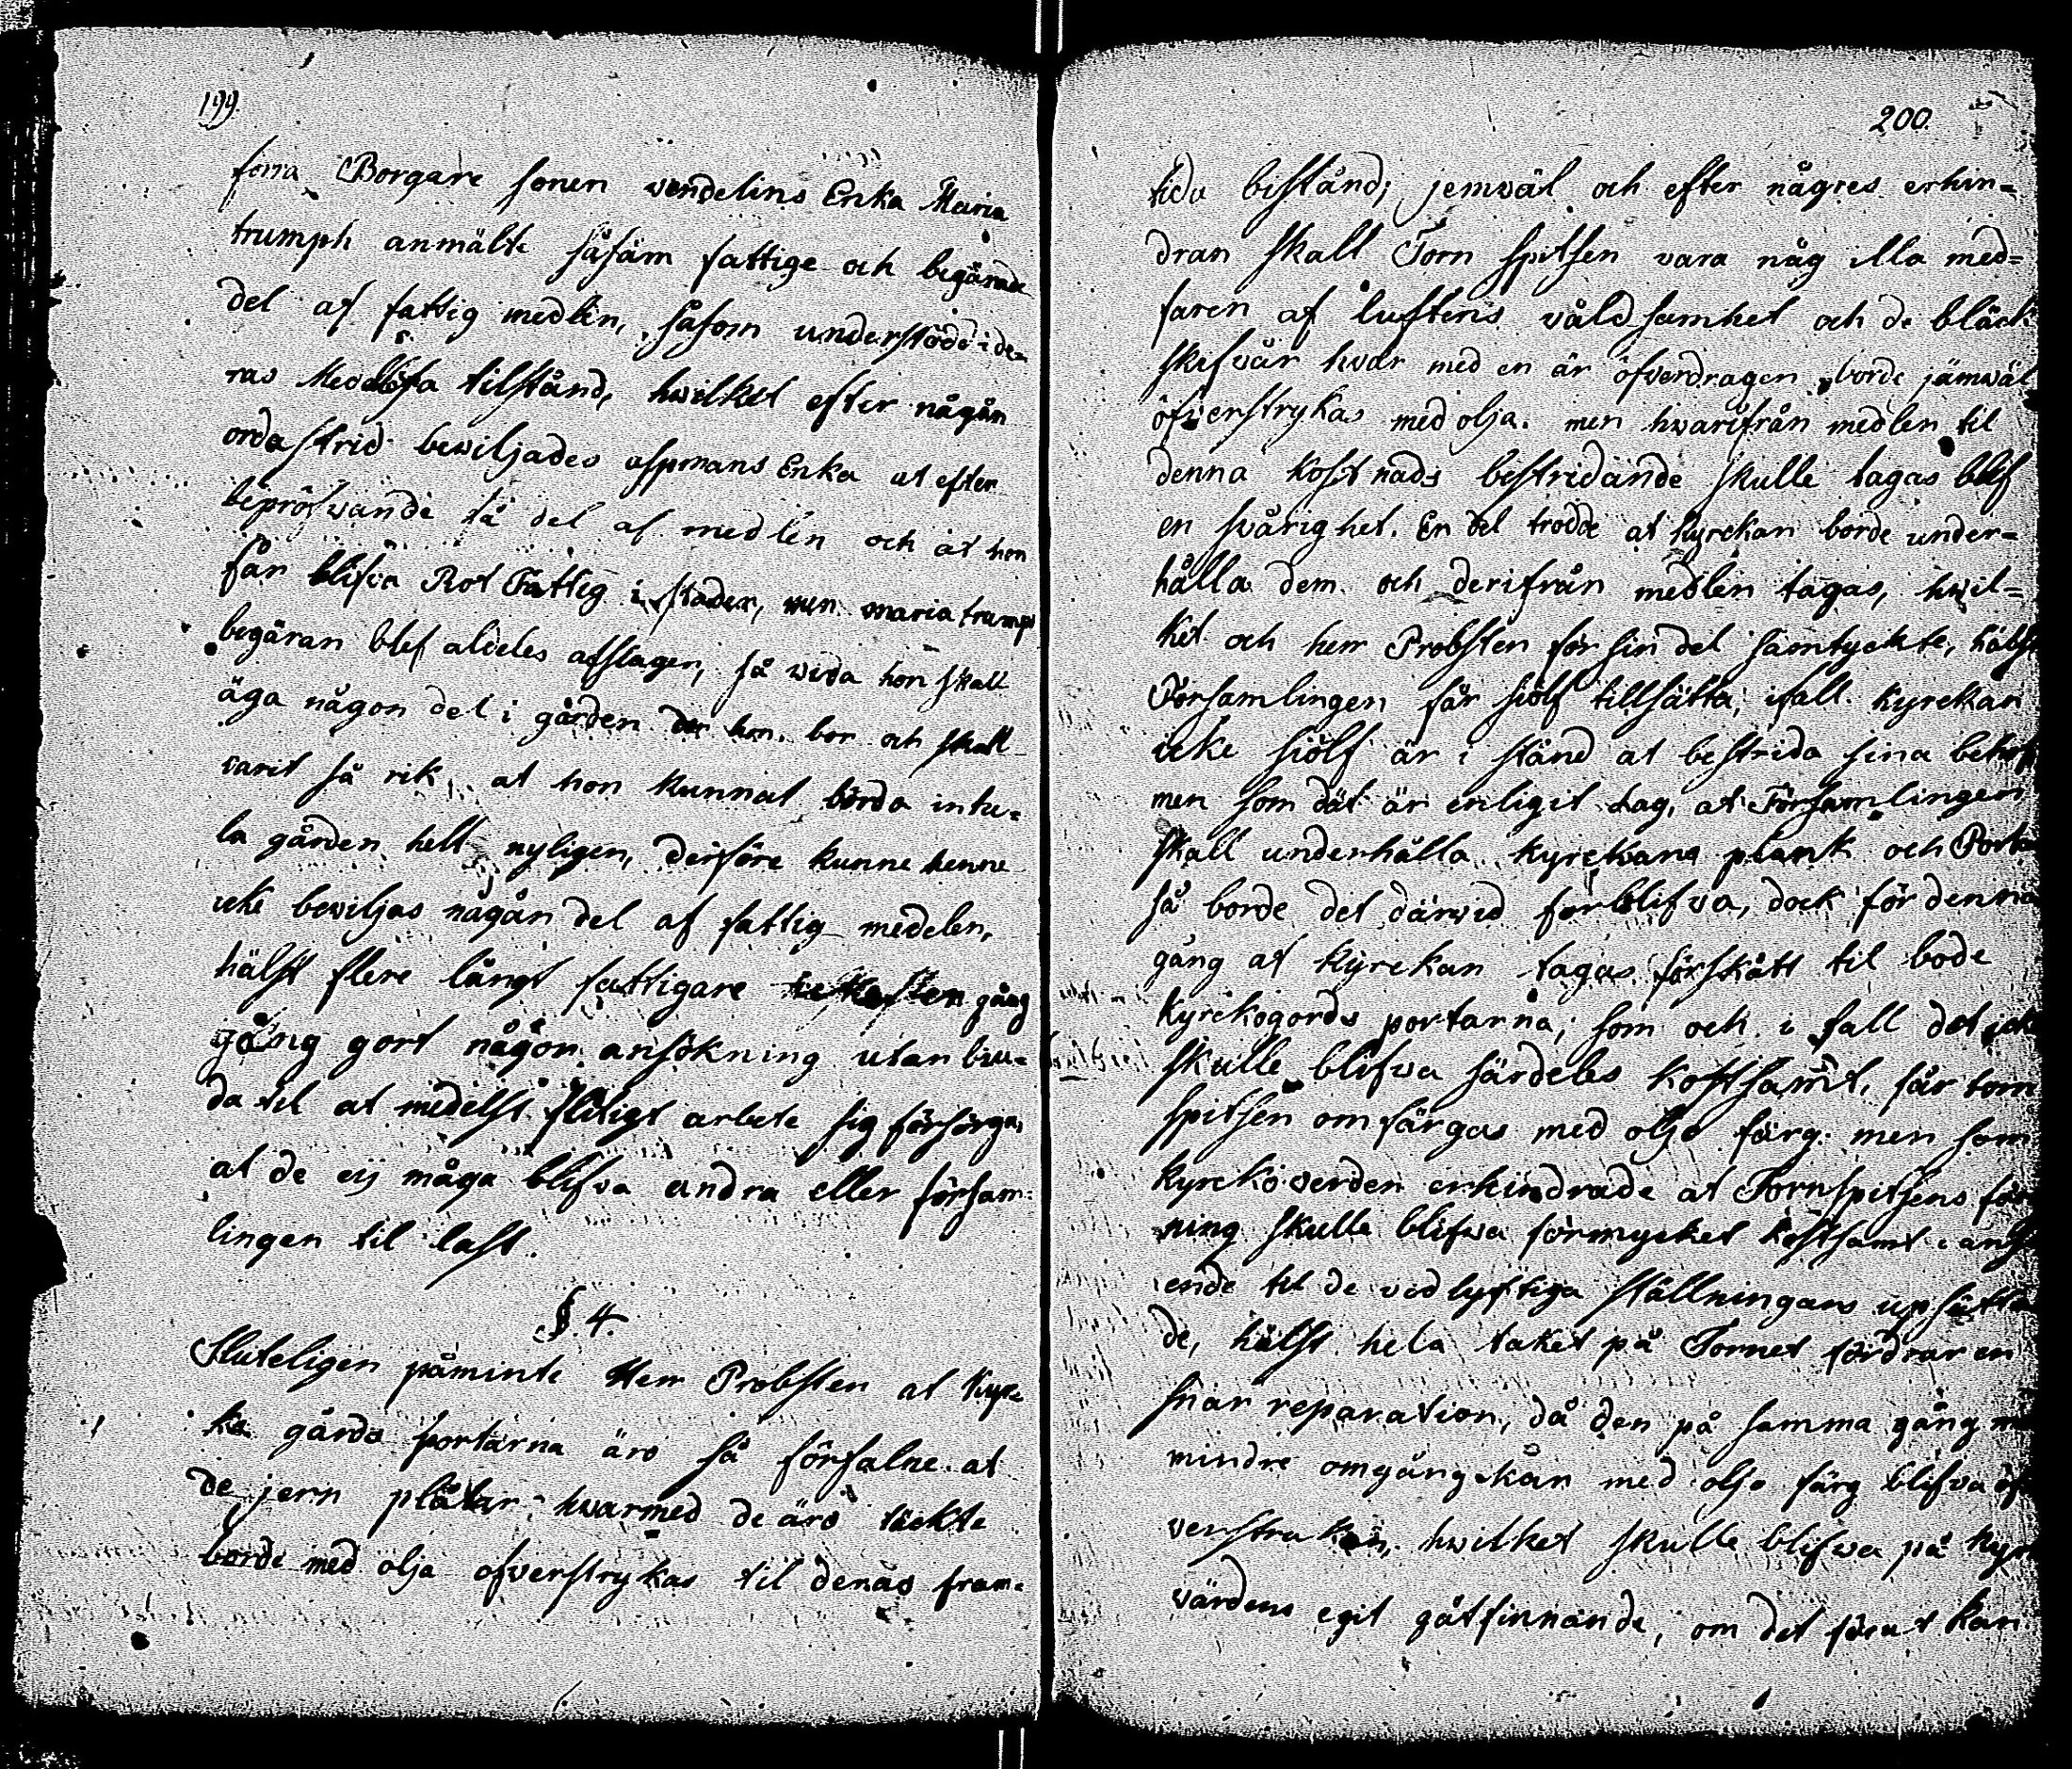 199.
förra Borgare sonen vendelins Enka Maria
trumph anmälte såsäm fattige och begärade
del af fattig medlen, såsom understöd i de=
ras Medellösa tilstånd, hwilket efter någån
orda strid bewiljades aspmans Enka at efter
bepröfwande få del af medlen och at hon
får blifva Rot Fattig i staden, men maria trumps
begäran blef aldeles afslagen, så wida hon skall
äga någon del i gården der hon bor och skall
varit så rik, at hon kunnat börda in hu=
la gården helt nyligen, derföre kunne henne
icke bewiljas någån del af fattig medelen,
hälst flere långt fattigare gång
gång gort någon ansökning utan biu=
da til at medelst flitigt arbete sig försörga,
at de eij måga blifva andra eller försam=
lingen til last.
§ 4.
Sluteligen påminte Herr Probsten at Kyre
ko gårds portarna äro så förfalne at
de jern plåtar hwarmed de äro täckte
borde med olja ofverstrykas til deras fram=
200.
tida bistånd; jemwäl och efter någres erhin=
dran skall Torn spitsen vara någ illa med=
faren af luftens våldsamhet och de bläck
skifvår hvar med en är öfverdragen, borde jämwäl
öfverstrykas med olja. men hwarifrån medlen til
denna kostnads bestridande skulle tagas blef
en svårighet. En del trodde at kyrckan borde under=
hålla dem och derifrån medlen tagas, hwil=
ket och herr Probsten för sin del samtyckte, hälst
Församlingen får siölf tillsätta, ifall kyrckan
icke siölf är i stånd at bestrida sina behof
men som dät är enligit Lag, at Församlingen
skall underhålla kyrckans plank och Portar
så borde det därwid förblifva, dock för denna
gång at kyrckan tagas förskått til bode
kyrckogords portarna; som och i fall det icke
skulle blifwa särdeles kostsamt, får torn
spitsen omfärgas med olje färg. men som
kyrckoverden erhindrade at Tornspitsens fär
ning skulle blifwa förmycket kostsamt i anse
ende til de vidlyftiga ställningars upsättan
de, hälst hela taket på Tornet fördrar en
snar reparation, då den på samma gång med
mindre omgång kan med olje färg blifva öf
verstruken, hwilket skulle blifwa på kyrk
värdens egit gåtfinnande, om det förut kan